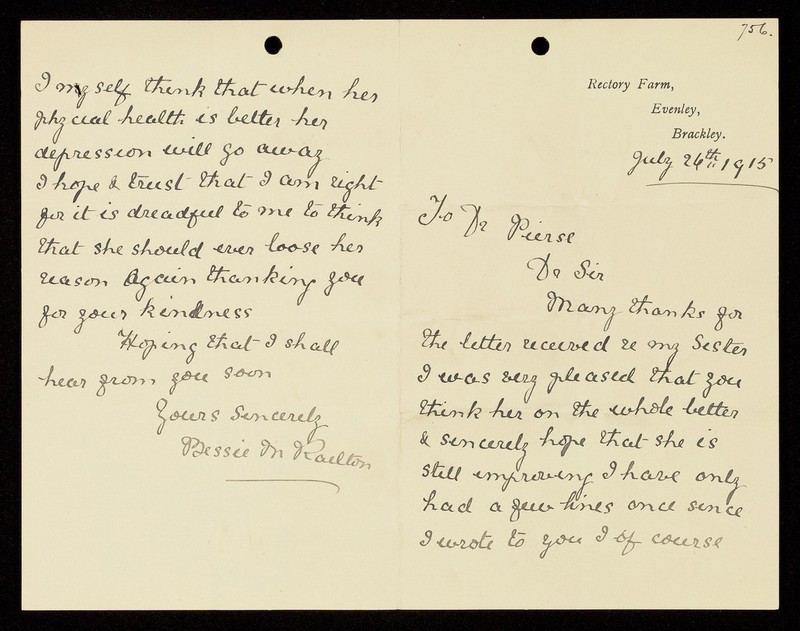 756.
Rectory Farm,
Evenley,
Brackley.
July 26th 1915
To Dr Pierse
Dr Sir
Many thanks for
the letter received re my Sister
I was very pleased that you
think her on the whole better
& sincerely hope that she is
still improving I have only
had a few lines once since
I wrote to you I of course
I myself think that when her
physical health is better her
depression will go away
I hope & trust that I am right
for it is dreadful to me to think
that she should ever loose her
reason Again thanking you
for your kindness
Hoping that I shall
hear from you soon
Yours Sincerely
Bessie M Railton